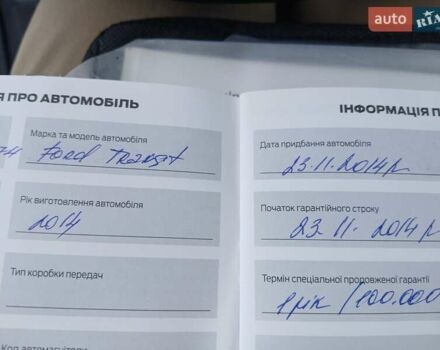 auto
RIA
Я ПРО АВТОМОБІЛЬ
Марка та модель автомобіля
Ford Transit
Рік виготовлення автомобіля
2014
Тип коробки передач
Код автомагнітоли
ІНФОРМАЦІЯ П
Дата придбання автомобіля
23.11.2014р
Початок гарантійного строку
23 11. 2014р
Термін спеціальної продовженої гарантії
1 рік / 100.000